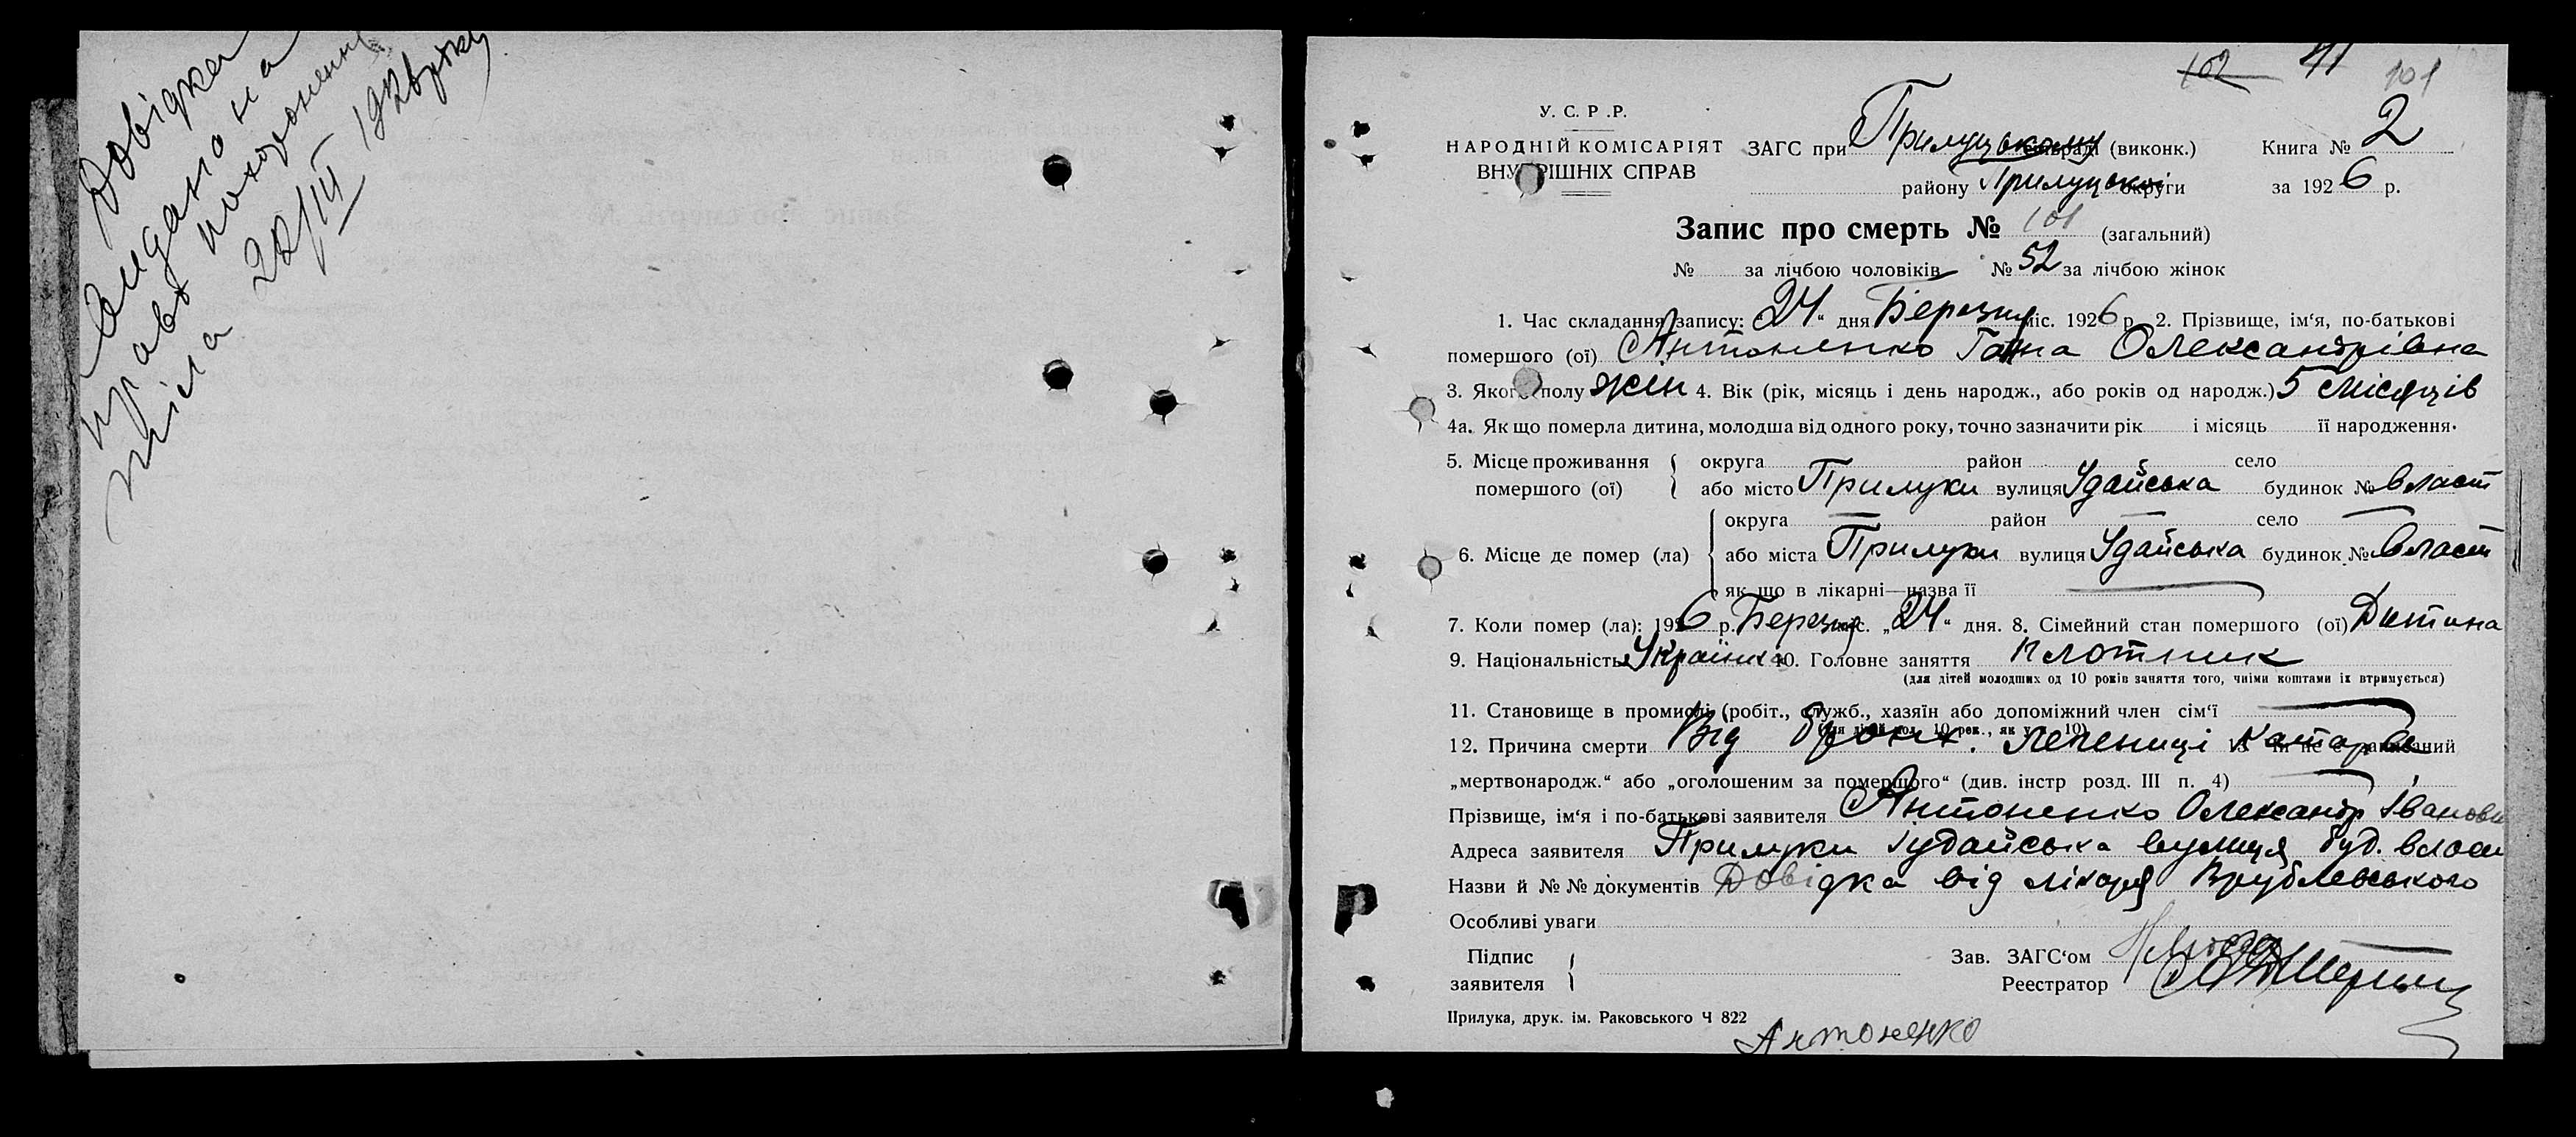 Довідка
видана на
право похоронення
тіла 22/III 1926 року
102 41 101
У. С. Р. Р.
НАРОДНІЙ КОМІСАРІЯТ ЗАГС при Прилуцькому (виконк.) Книга № 2
ВНУТРІШНІХ СПРАВ району Прилуцької округи за 1926 р.
Запис про смерть № 101 (загальний)
№ за лічбою чоловіків № 52 за лічбою жінок
1. Час складання запису: 24 “ дня Березня міс. 1926 р. 2. Прізвище, ім‘я, по-батькові
помершого (ої) Антоненко Ганна Олександрівна
3. Якого полу жін 4. Вік (рік, місяць і день народж., або років од народж.) 5 місяців
4а. Як що померла дитина, молодша від одного року, точно зазначити рік і місяць її народження.
5. Місце проживання округа район село
помершого (ої) або місто Прилуки вулиця Удайська будинок № власт
округа — район — село —
6. Місце де помер (ла) або міста Прилуки вулиця Удайська будинок № власт
як що в лікарні—назва її —
7. Коли помер (ла): 1926 р. Березня міс. „24“ дня. 8. Сімейний стан помершого (ої) Дитина
9. Національність Українка 10. Головне заняття плотник
(для дітей молодших од 10 років заняття того, чиїми коштами їх втримується)
11. Становище в промислі (робіт., служб., хазяїн або допоміжний член сім‘ї —
(для дітей мол. 10 рок., як у п. 10)
12. Причина смерти Від бронх. легениці катарве 13 чи не записаний
„мертвонародж.“ або „оголошеним за помершого“ (див. інстр розд. III п. 4) —
Прізвище, ім‘я і по-батькові заявителя Антоненко Олександр Іванови
Адреса заявителя Прилуки Гудайська вулиця буд. власн
Назви й №№ документів Довідка від лікаря Врублевського
Особливі уваги
Підпис Зав. ЗАГС‘ом
заявителя Реестратор
Прилука, друк. ім. Раковського Ч 822
Антоненко